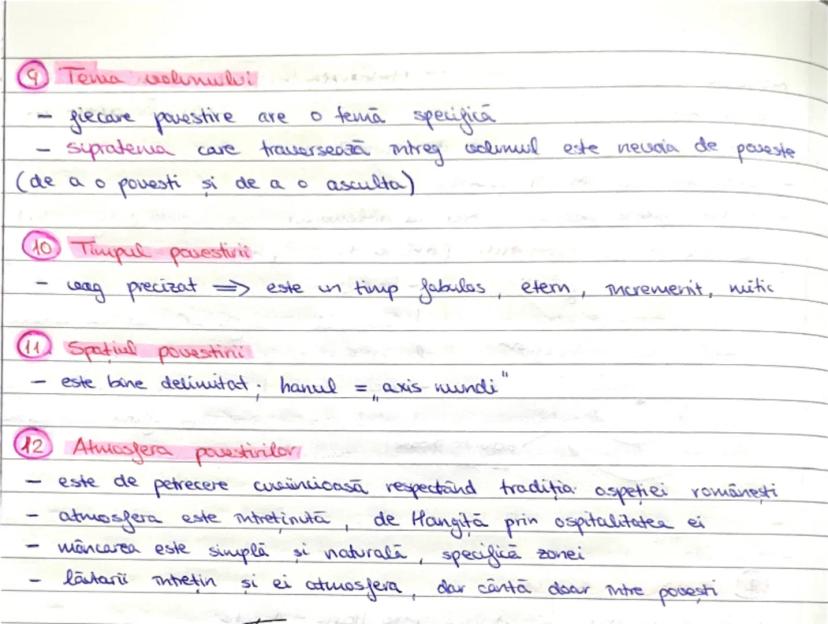 9 Tema volumului
- fiecare povestire are o temă specifică
- supratema care traversează întreg volumul este nevoia de poveste
(de a o povesti și de a o asculta)
10 Timpul povestirii
- vag precizat => este un timp fabulos, etern, încremenit, mitic
11 Spațiul povestirii
- este bine delimitat; hanul = „axis mundi"
12 Atmosfera povestirilor
- este de petrecere cuviincioasă respectând tradiția ospeției românești
- atmosfera este întreținută, de Hangiță prin ospitalitatea ei
- mâncarea este simplă și naturală, specifică zonei
- lăutarii întrețin și ei atmosfera, dar cântă doar între povești